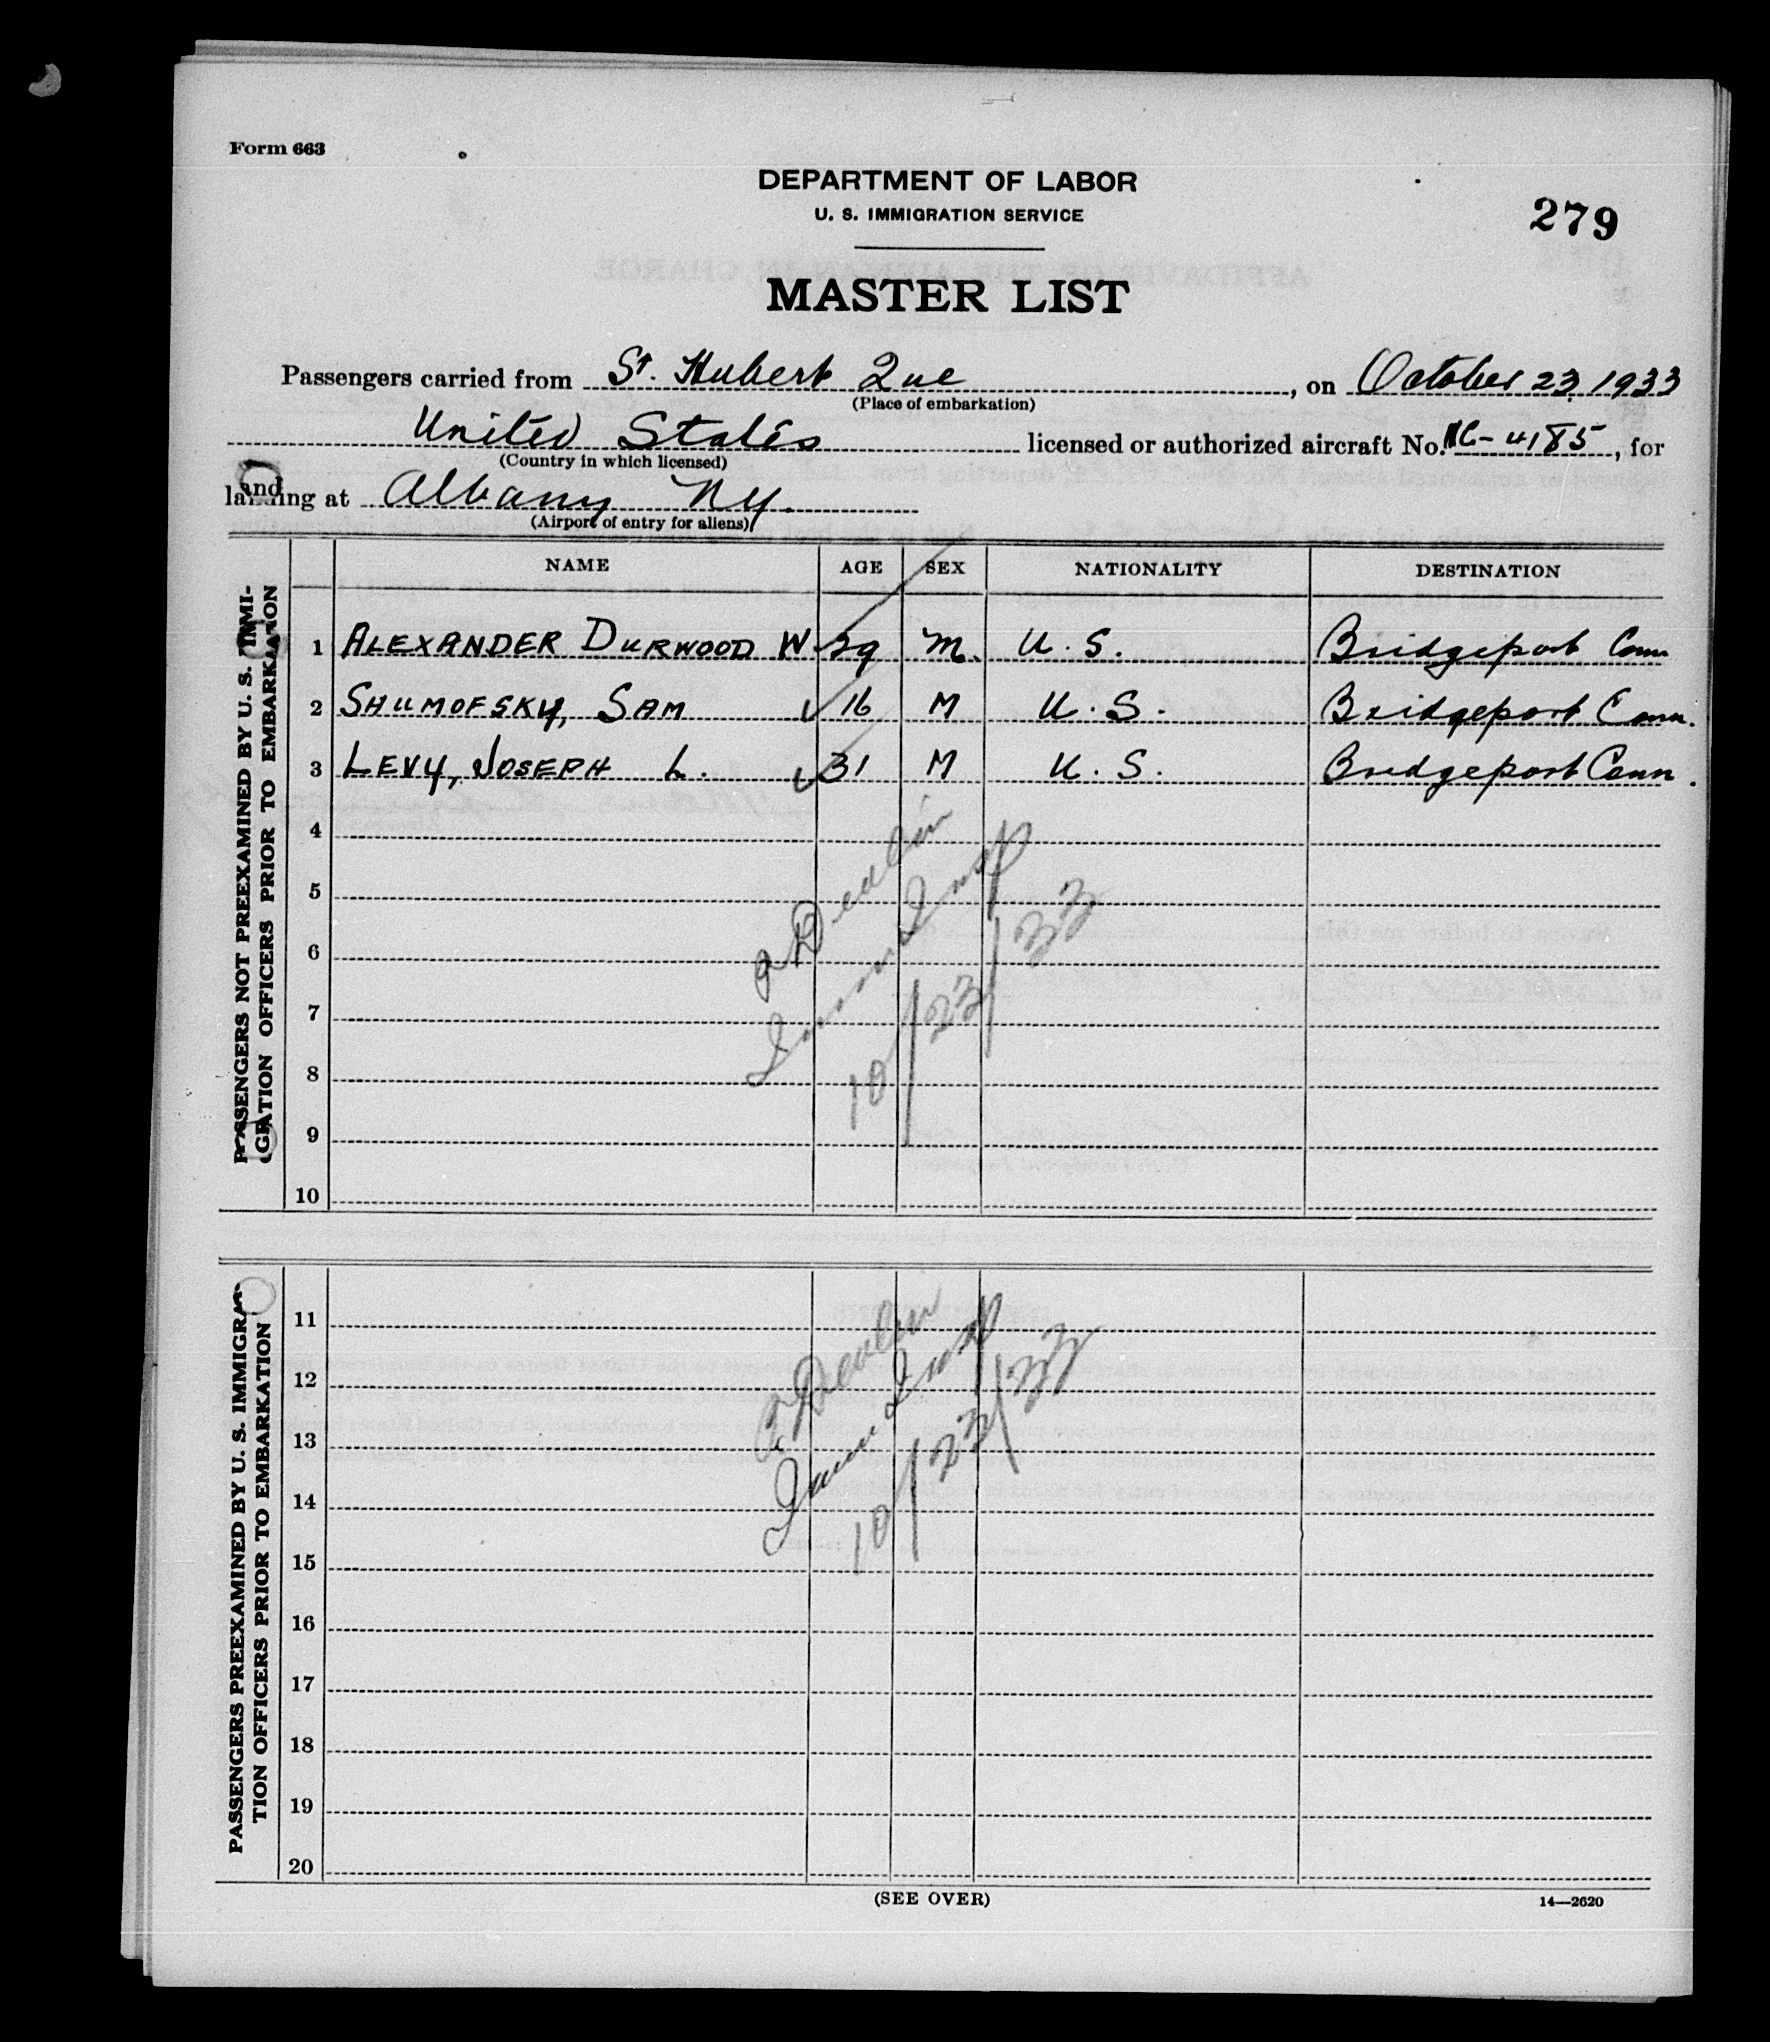 Form 663
DEPARTMENT OF LABOR
U. S. IMMIGRATION SERVICE
279
MASTER LIST
Passengers carried from St. Hubert Que, on October 23, 1933
(Place of embarkation)
United States licensed or authorized aircraft No. NC-4185, for
(Country in which licensed)
landing at Albany NY.
(Airport of entry for aliens)
NAME AGE SEX NATIONALITY DESTINATION
PASSENGERS NOT PREEXAMINED BY U. S. IMMI-
GRATION OFFICERS PRIOR TO EMBARKATION
1 ALEXANDER DURWOOD W 29 M. U.S. Bridgeport Conn
2 SHUMOFSKY, SAM 16 M U.S. Bridgeport Conn.
3 LEVY, JOSEPH L. 31 M U.S. Bridgeport Conn.
4
5
6
7
8
9
10
Devlin
Imm Insp
10/23/33
PASSENGERS PREEXAMINED BY U. S. IMMIGRA-
TION OFFICERS PRIOR TO EMBARKATION
11
12
13
14
15
16
17
18
19
20
Devlin
Imm Insp
10/23/33
(SEE OVER)
14—2620